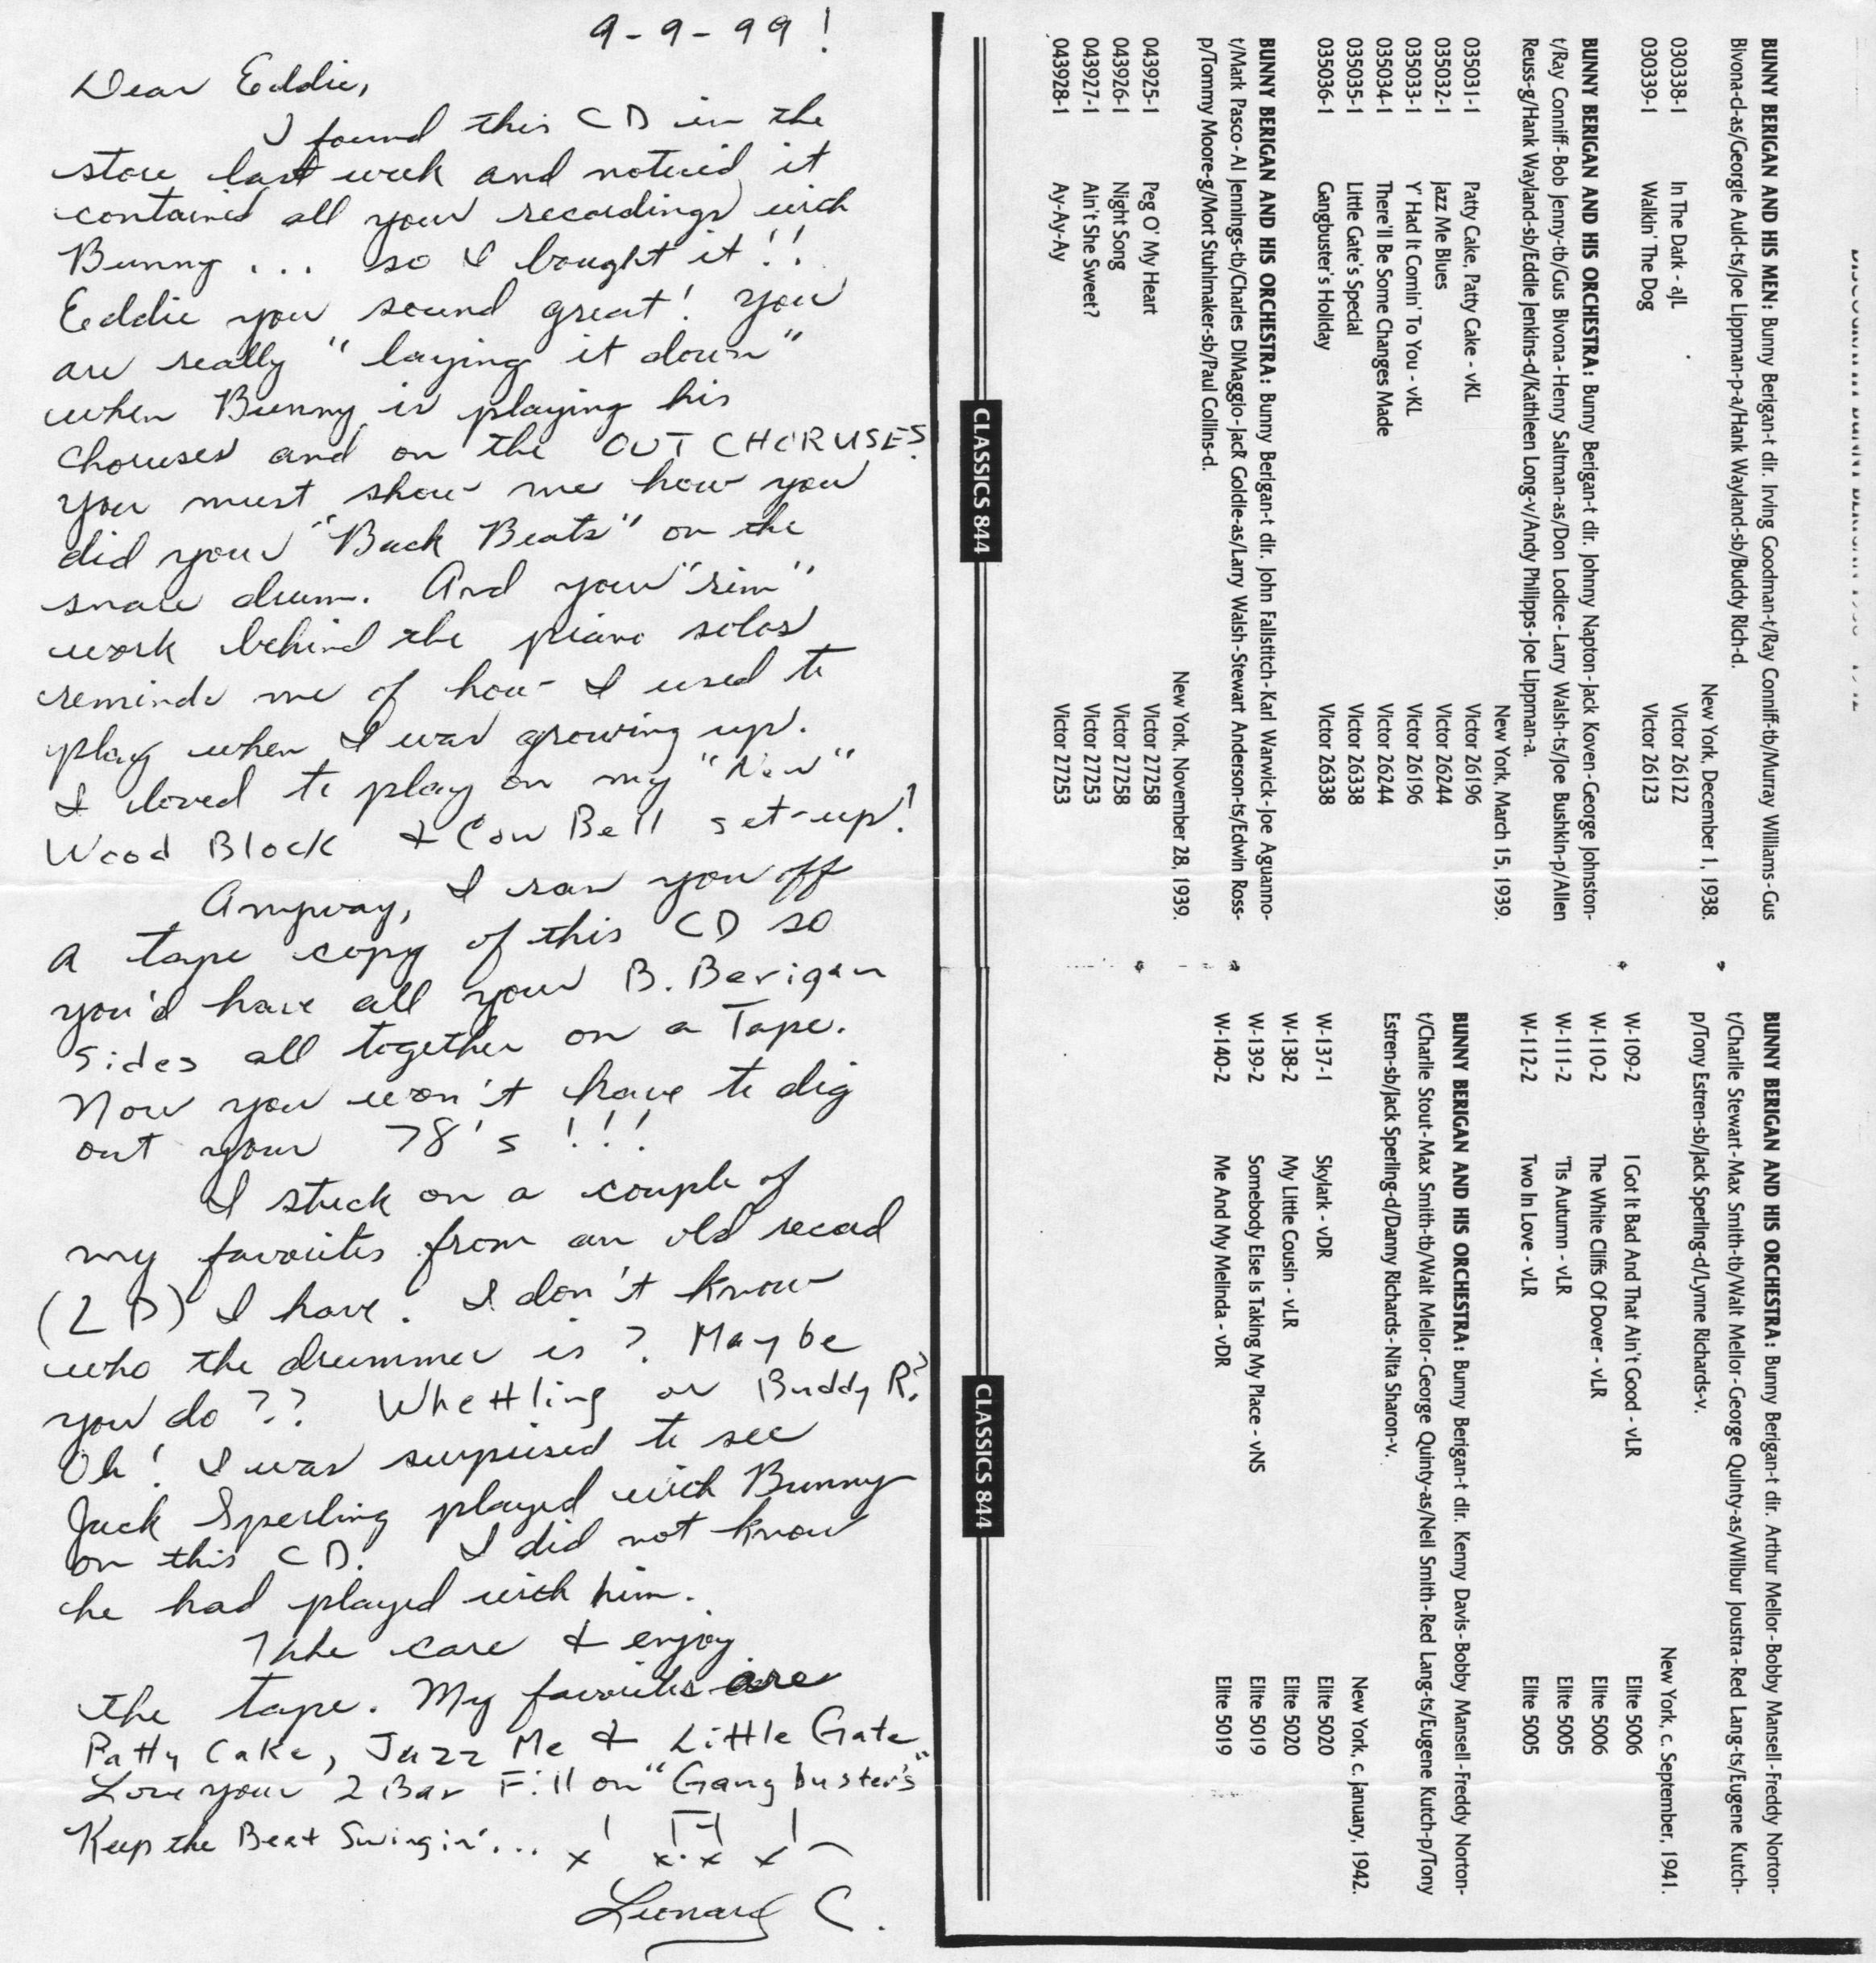 9-9-99!
Dear Eddie,
I found this CD in the
store last week and noticed it
contained all your recordings with
Bunny ... so I bought it!!
Eddie you sound great! You
are really "laying it down"
when Bunny is playing his
choruses and on the OUT CHORUSES.
You must show me how you
did your "Back Beats" on the
snare drum. And your "rim"
work behind the piano solos
reminds me of how I used to
play when I was growing up.
I loved to play on my "New"
Wood Block & Cow Bell set-up!
Anyway, I ran you off
a tape copy of this CD so
you'd have all your B. Berigan
sides all together on a Tape.
Now you won't have to dig
out your 78's !!!
I stuck on a couple of
my favorites from an old record
(LP) I have. I don't know
who the drummer is? Maybe
you do?? Whettling or Buddy R?
Oh! I was surprised to see
Jack Sperling played with Bunny
on this CD. I did not know
he had played with him.
Take care & enjoy
the tape. My favorites are
Patty Cake, Jazz Me & Little Gate
Love your 2 Bar Fill on "Gangbuster's"
Keep the Beat Swingin'...
Leonard C.
BUNNY BERIGAN AND HIS MEN: Bunny Berigan-t dir. Irving Goodman-t/Ray Conniff-tb/Murray Williams-Gus
Bivona-cl-as/Georgie Auld-ts/Joe Lippman-p-a/Hank Wayland-sb/Buddy Rich-d.
New York, December 1, 1938.
030338-1 In The Dark - aJL Victor 26122
030339-1 Walkin' The Dog Victor 26123
BUNNY BERIGAN AND HIS ORCHESTRA: Bunny Berigan-t dir. Johnny Napton-Jack Koven-George Johnston-
t/Ray Conniff-Bob Jenny-tb/Gus Bivona-Henry Saltman-as/Don Lodice-Larry Walsh-ts/Joe Bushkin-p/Allen
Reuss-g/Hank Wayland-sb/Eddie Jenkins-d/Kathleen Long-v/Andy Philipps-Joe Lippman-a.
New York, March 15, 1939.
035031-1 Patty Cake, Patty Cake - vKL Victor 26196
035032-1 Jazz Me Blues Victor 26244
035033-1 Y' Had It Comin' To You - vKL Victor 26196
035034-1 There'll Be Some Changes Made Victor 26244
035035-1 Little Gate's Special Victor 26338
035036-1 Gangbuster's Holiday Victor 26338
BUNNY BERIGAN AND HIS ORCHESTRA: Bunny Berigan-t dir. John Fallstitch-Karl Warwick-Joe Aguanno-
t/Mark Pasco-Al Jennings-tb/Charles DiMaggio-Jack Goldie-as/Larry Walsh-Stewart Anderson-ts/Edwin Ross-
p/Tommy Moore-g/Mort Stuhlmaker-sb/Paul Collins-d.
New York, November 28, 1939.
043925-1 Peg O' My Heart Victor 27258
043926-1 Night Song Victor 27258
043927-1 Ain't She Sweet? Victor 27253
043928-1 Ay-Ay-Ay Victor 27253
CLASSICS 844
BUNNY BERIGAN AND HIS ORCHESTRA: Bunny Berigan-t dir. Arthur Mellor-Bobby Mansell-Freddy Norton-
t/Charlie Stewart-Max Smith-tb/Walt Mellor-George Quinty-as/Wilbur Joustra-Red Lang-ts/Eugene Kutch-
p/Tony Estren-sb/Jack Sperling-d/Lynne Richards-v.
New York, c. September, 1941.
W-109-2 I Got It Bad And That Ain't Good - vLR Elite 5006
W-110-2 The White Cliffs Of Dover - vLR Elite 5006
W-111-2 'Tis Autumn - vLR Elite 5005
W-112-2 Two In Love - vLR Elite 5005
BUNNY BERIGAN AND HIS ORCHESTRA: Bunny Berigan-t dir. Kenny Davis-Bobby Mansell-Freddy Norton-
t/Charlie Stout-Max Smith-tb/Walt Mellor-George Quinty-as/Neil Smith-Red Lang-ts/Eugene Kutch-p/Tony
Estren-sb/Jack Sperling-d/Danny Richards-Nita Sharon-v.
New York, c. January, 1942.
W-137-1 Skylark - vDR Elite 5020
W-138-2 My Little Cousin - vLR Elite 5020
W-139-2 Somebody Else Is Taking My Place - vNS Elite 5019
W-140-2 Me And My Melinda - vDR Elite 5019
CLASSICS 844